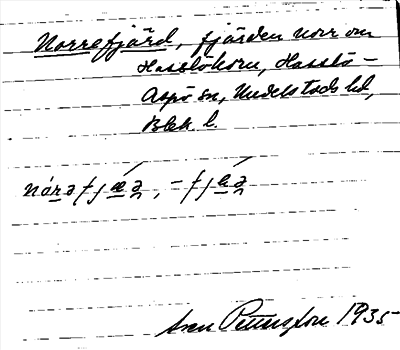 Norrefjärd, fjärden norr om
Hasslöhorn, Hasslö-
Aspö sn, Medelstads hd,
Blek. l.
nórəfjæ̣ə,
Sven Pettersson 1935